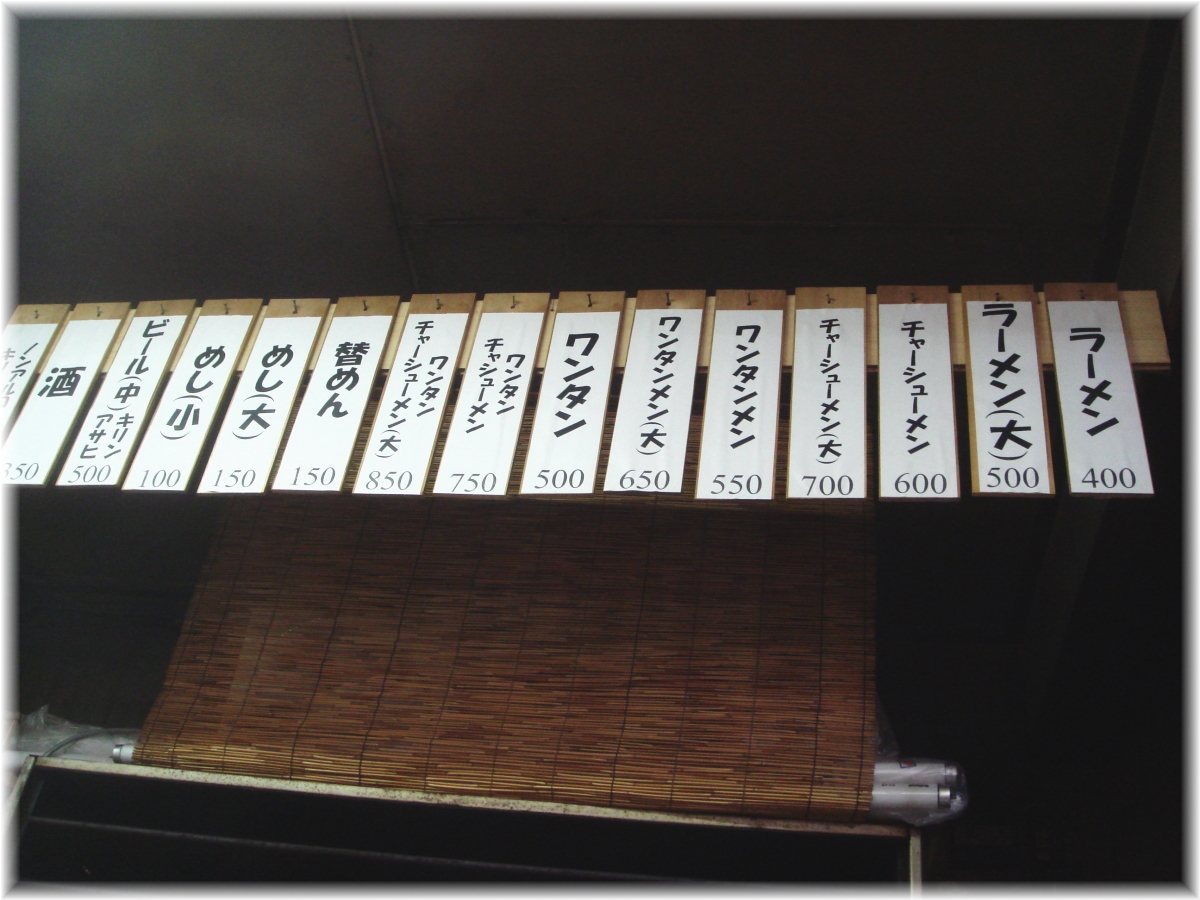 ラーメン
400
ラーメン(大)
500
チャーシューメン
600
チャーシューメン(大)
700
ワンタンメン
550
ワンタンメン(大)
650
ワンタン
500
ワンタン
チャシューメン
750
ワンタン
チャーシューメン(大)
850
替めん
150
めし(大)
150
めし(小)
100
ビール(中)
キリン
アサヒ
500
酒
ノンアルコ
350